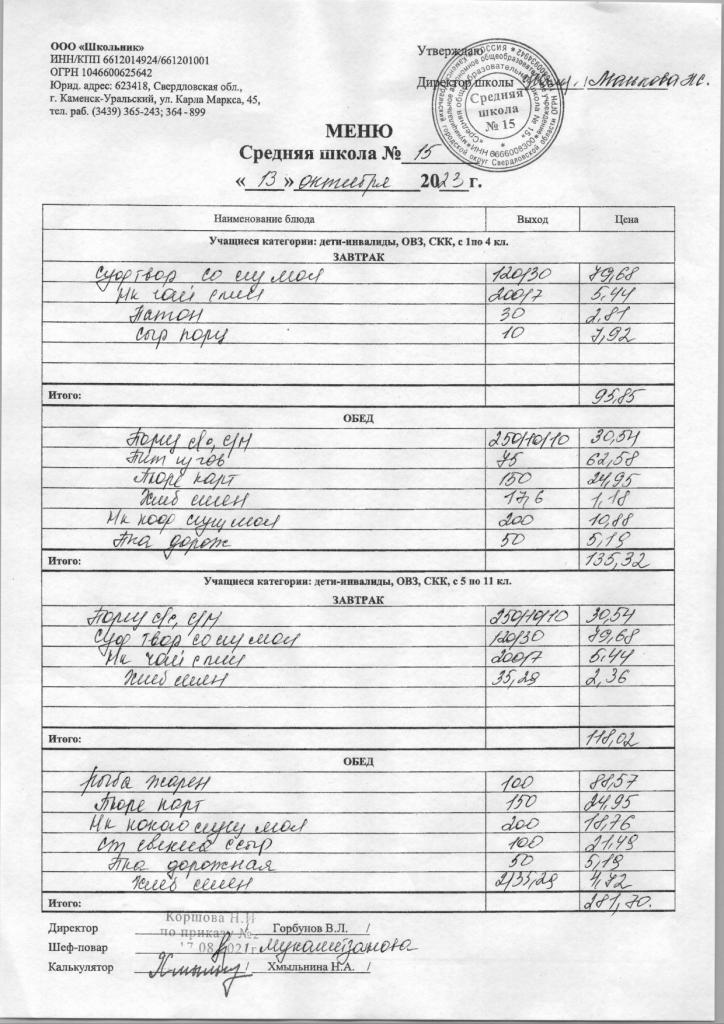 ООО «Школьник»
ИНН/КПП 6612014924/661201001
ОГРН 1046600625642
Юрид. адрес: 623418, Свердловская обл.,
г. Каменск-Уральский, ул. Карла Маркса, 45,
тел. раб. (3439) 365-243; 364 - 899
Утверждаю
Директор школы
Средняя
школа
№ 15
МЕНЮ
Средняя школа № 15
« 13 » октября 2023 г.
Наименование блюда Выход Цена
Учащиеся категории: дети-инвалиды, ОВЗ, СКК, с 1по 4 кл.
ЗАВТРАК
Суф твор со сгу мол 120/30 79,68
Нк чай с лим 200/7 5,44
Батон 30 2,81
Сыр порц 10 7,92
Итого: 95,85
ОБЕД
Борщ с/с, с/м 250/10/10 30,54
75 62,58
Пюре карт 150 24,95
Хлеб 17,6 1,18
Нк коф сгущ мол 200 10,88
дорож 50 5,19
Итого: 135,32
Учащиеся категории: дети-инвалиды, ОВЗ, СКК, с 5 по 11 кл.
ЗАВТРАК
Борщ с/с, с/м 250/10/10 30,54
Суф твор со сгу мол 120/30 79,68
Нк чай с лим 200/7 5,44
Хлеб 35,29 2,36
Итого: 118,02
ОБЕД
Рыба жарен 100 88,57
Пюре карт 150 24,95
Нк какао сгущ мол 200 18,76
100 21,49
дорожная 50 5,19
Хлеб 2/35,29 4,72
Итого: 281,70.
Коршова Н.И
по приказу №2
17.08.2021г
Директор / Горбунов В.Л. /
Шеф-повар
Калькулятор / Хмыльнина Н.А. /